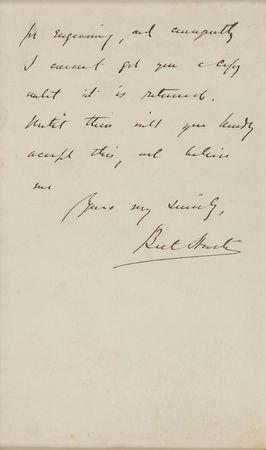 for engraving, and consequently
I cannot get you a copy
until it is returned.
Until then will you kindly
accept this, and believe
me
Yours very sincerely,
Bret Harte